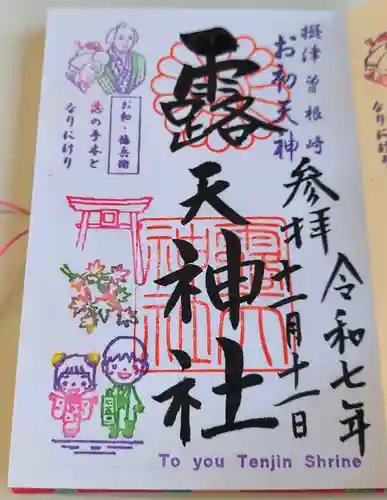 摂津曽根崎
お初天神
露天神社
参拝
令和七年
十一月十一日
お初・徳兵衛
恋の手本と
なりにけり
露天神社
To you Tenjin Shrine